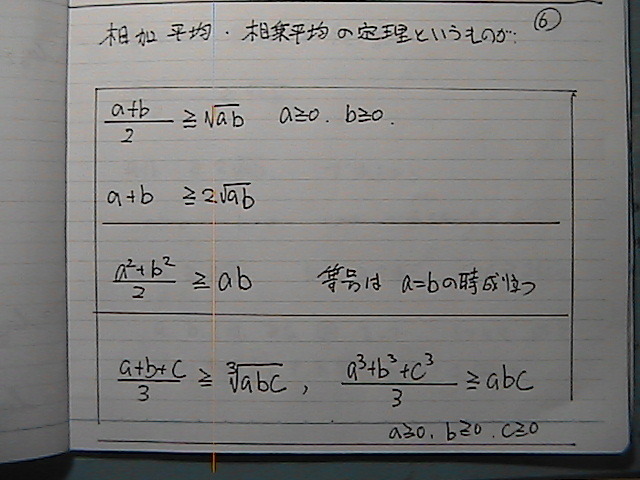 ⑥
相加平均・相乗平均の定理というものが…
(a+b)/2 ≧ √ab a≥0. b≥0.
a+b ≧ 2√ab
(a²+b²)/2 ≥ ab 等号は a=bの時成り立つ
(a+b+c)/3 ≧ ∛abc , (a³+b³+c³)/3 ≥ abc
a≥0. b≥0. c≥0